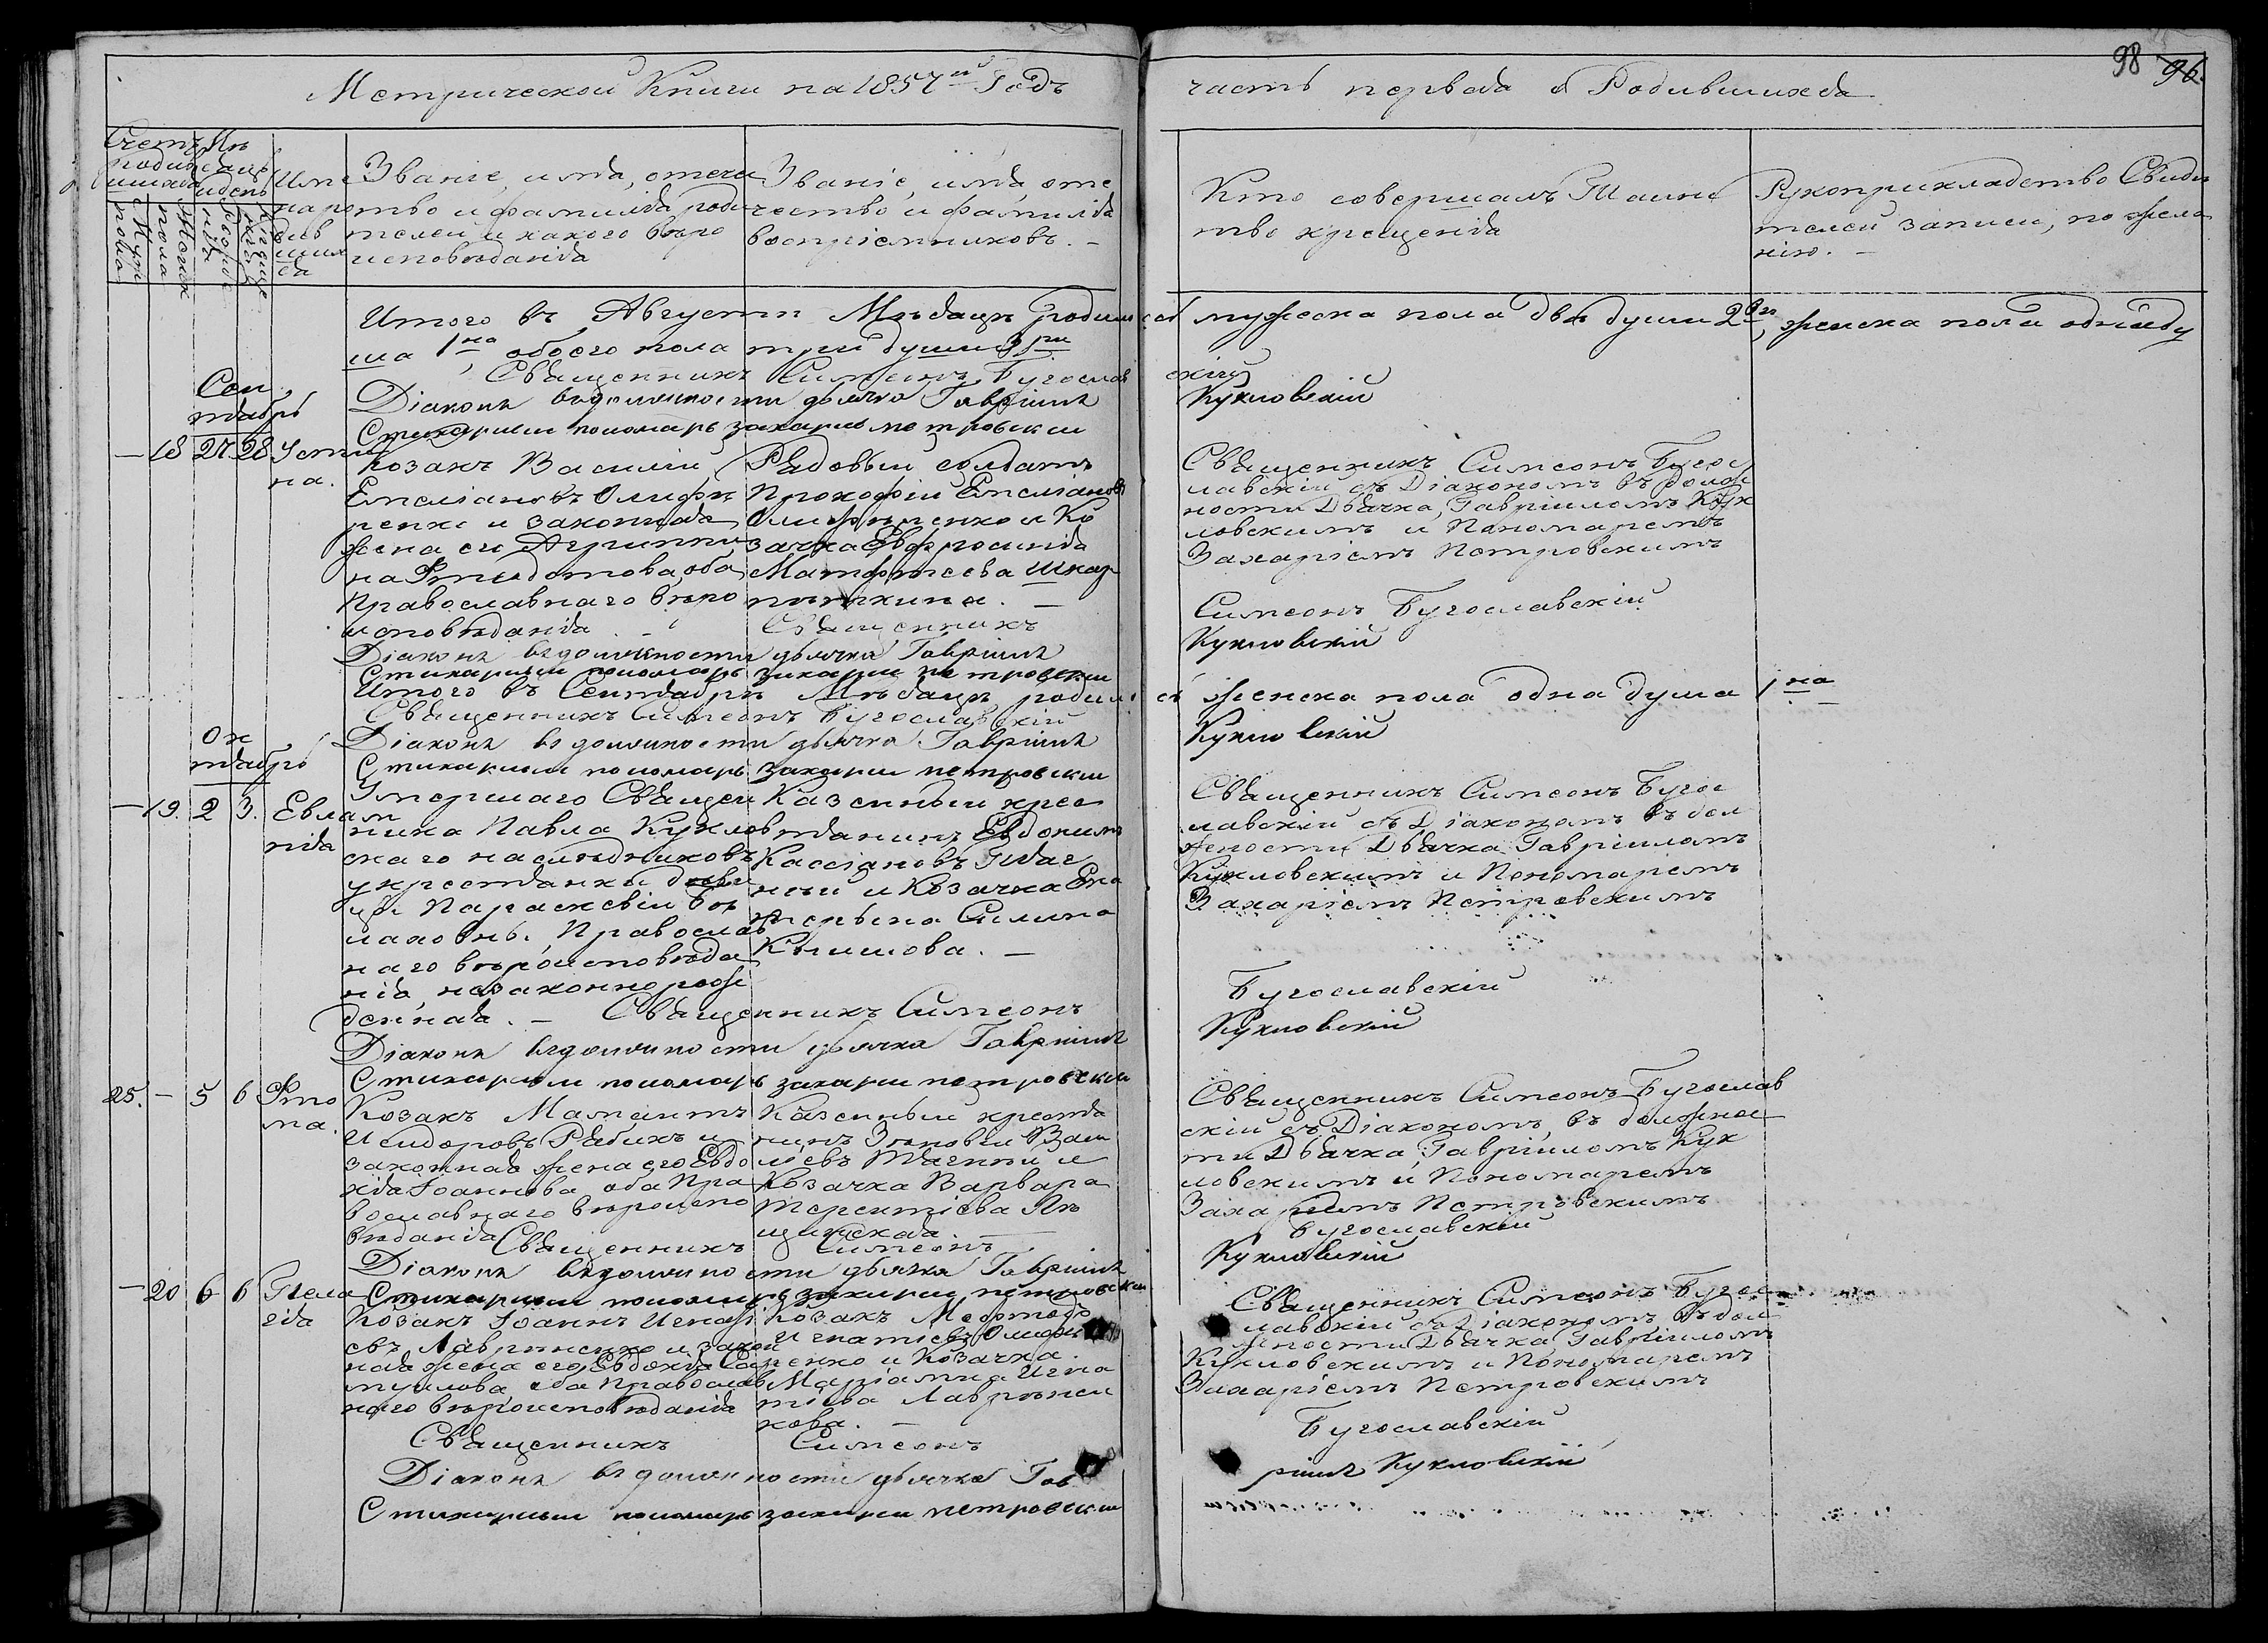 98 96.
Метрической Книги на 1857й Годъ часть первая о Родившихся
Счетъ родившихся
Мѣсяцъ и день
Мужеска пола
Женска пола
рожденія
крещенія
Имена родившихся
Званіе, имя, отечество и фамилія родителей и какого вѣроисповѣданія
Званіе, имя, отечество и фамилія воспріемниковъ. –
Кто совершалъ Таинство крещенія
Рукоприкладство Свидѣтелей записи, по желанію. –
Итого въ Августѣ Мѣсяцѣ родилось мужеска пола двѣ души 2вѣ, женска пола одна ду
ша 1на обоего пола три души 3ри
Священникъ Симеонъ Бугославскій
Діаконъ въ должности дьячка Гавріилъ Кукловскій
Стихарный пономарь Захарий Петровский
Сен
тябрь
— 18 27 28 Усти
на.
Козакъ Василій
Емеліановъ Олифи
ренко и законная
жена его Агриппи
на Ѳеодотова, оба
Православнаго вѣро
исповѣданія. –
Рядовый солдатъ
Прокофій Емеліановъ
Олифиренко и Ко
зачка Евфросинія
Матфѣева Шкар
пѣткина. –
Священникъ Симеонъ Бугос
лавскій съ Діакономъ въ долж
ности Дьячка, Гавріиломъ Кук
ловскимъ и Пономаремъ
Захаріемъ Петровскимъ
Священникъ Симеонъ Бугославскій
Діаконъ въ должности дьячка Гавріилъ Кукловскій
Стихарный пономарь Захарий Петровский
Итого въ Сентябрѣ Мѣсяцѣ родилось женска пола одна душа 1на
Священникъ Симеонъ Бугославскій
Діаконъ въ должности дьячка Гавріилъ Кукловскій
Стихарный пономарь Захарий Петровский
Ок
тябрь
— 19. 2 3. Евлам
пія
Умершаго Священ
ника Павла Куклов
скаго наслѣдниковъ
у крестьянки
Параскевіи
Православ
наго вѣроисповѣда
нія, незаконнорож
денная. –
Казенный крес
тьянинъ Евдокимъ
Кассіановъ
и Козачка
Симина
Клишова. –
Священникъ Симеонъ Бугос
лавскій съ Діакономъ въ дол
жности Дьячка Гавріиломъ
Кукловскимъ и Пономаремъ
Захаріемъ Петровскимъ
Священникъ Симеонъ Бугославскій
Діаконъ въ должности дьячка Гавріилъ Кукловскій
Стихарный пономарь Захарий Петровский
25. — 5 6 Ѳио
ма.
Козакъ Мамантъ
Исидоровъ Рябихъ и
законная жена его Евдо
кія Іоаннова оба Пра
вославнаго вѣроиспо
вѣданія
Казенный крестья
нинъ Зѣновій Васи
ліевъ и
Козачка Варвара
Терентіева
Священникъ Симеонъ Бугослав
скій съ Діакономъ, въ должнос
ти Дьячка, Гавріиломъ Кук
ловскимъ и Пономаремъ
Захаріемъ Петровскимъ
Священникъ Симеонъ Бугославскій
Діаконъ въ должности дьячка Гавріилъ Кукловскій
Стихарный пономарь Захарий Петровский
— 20 6 6 Пела
гія
Козакъ Іоаннъ Игнаті
евъ Лавриненко и закон
ная жена его Евдокія Са
муилова, оба Православ
наго вѣроисповѣданія
Козакъ Меѳодій
Игнатіевъ Олифи
ренко и Козачка
Маріамна Игна
тіева Лавринен
кова. –
Священникъ Симеонъ Бугос
лавскій съ Діакономъ, въ дол
жности Дьячка, Гавріиломъ
Кукловскимъ и Пономаремъ
Захаріемъ Петровскимъ
Священникъ Симеонъ Бугославскій
Діаконъ въ должности дьячка Гавріилъ Кукловскій
Стихарный пономарь Захарий Петровский